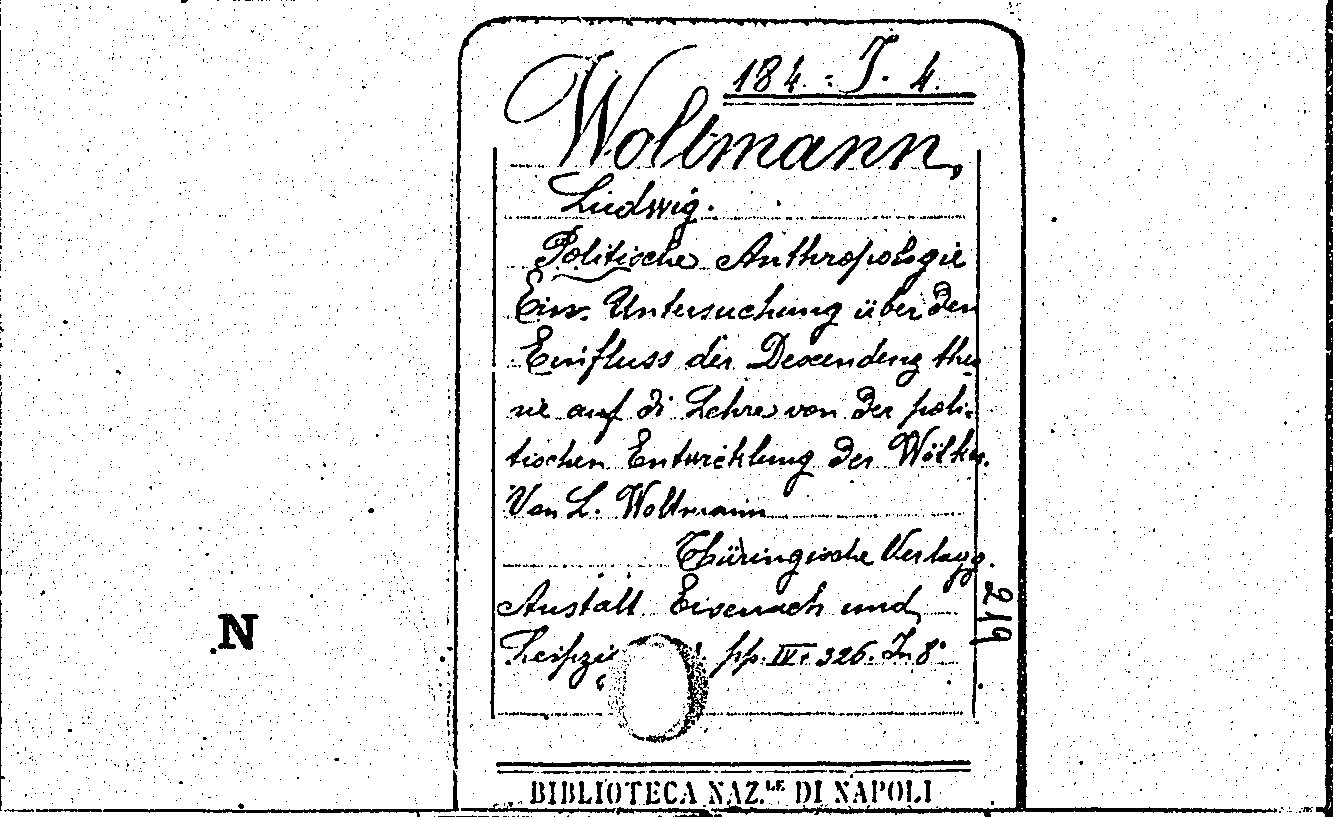 184. J. 4.
Woltmann,
Ludwig.
Politische Anthropologie
Eine Untersuchung über den
Einfluss der Descendenz theo
rie auf di Lehre von der poli-
tischen Entwicklung der Völker.
Von L. Woltmann
Thüringische Verlags.
Anstalt Eisenach und
Leipzig pp. IV. 326. In 8°
219
N
BIBLIOTECA NAZ.LE DI NAPOLI